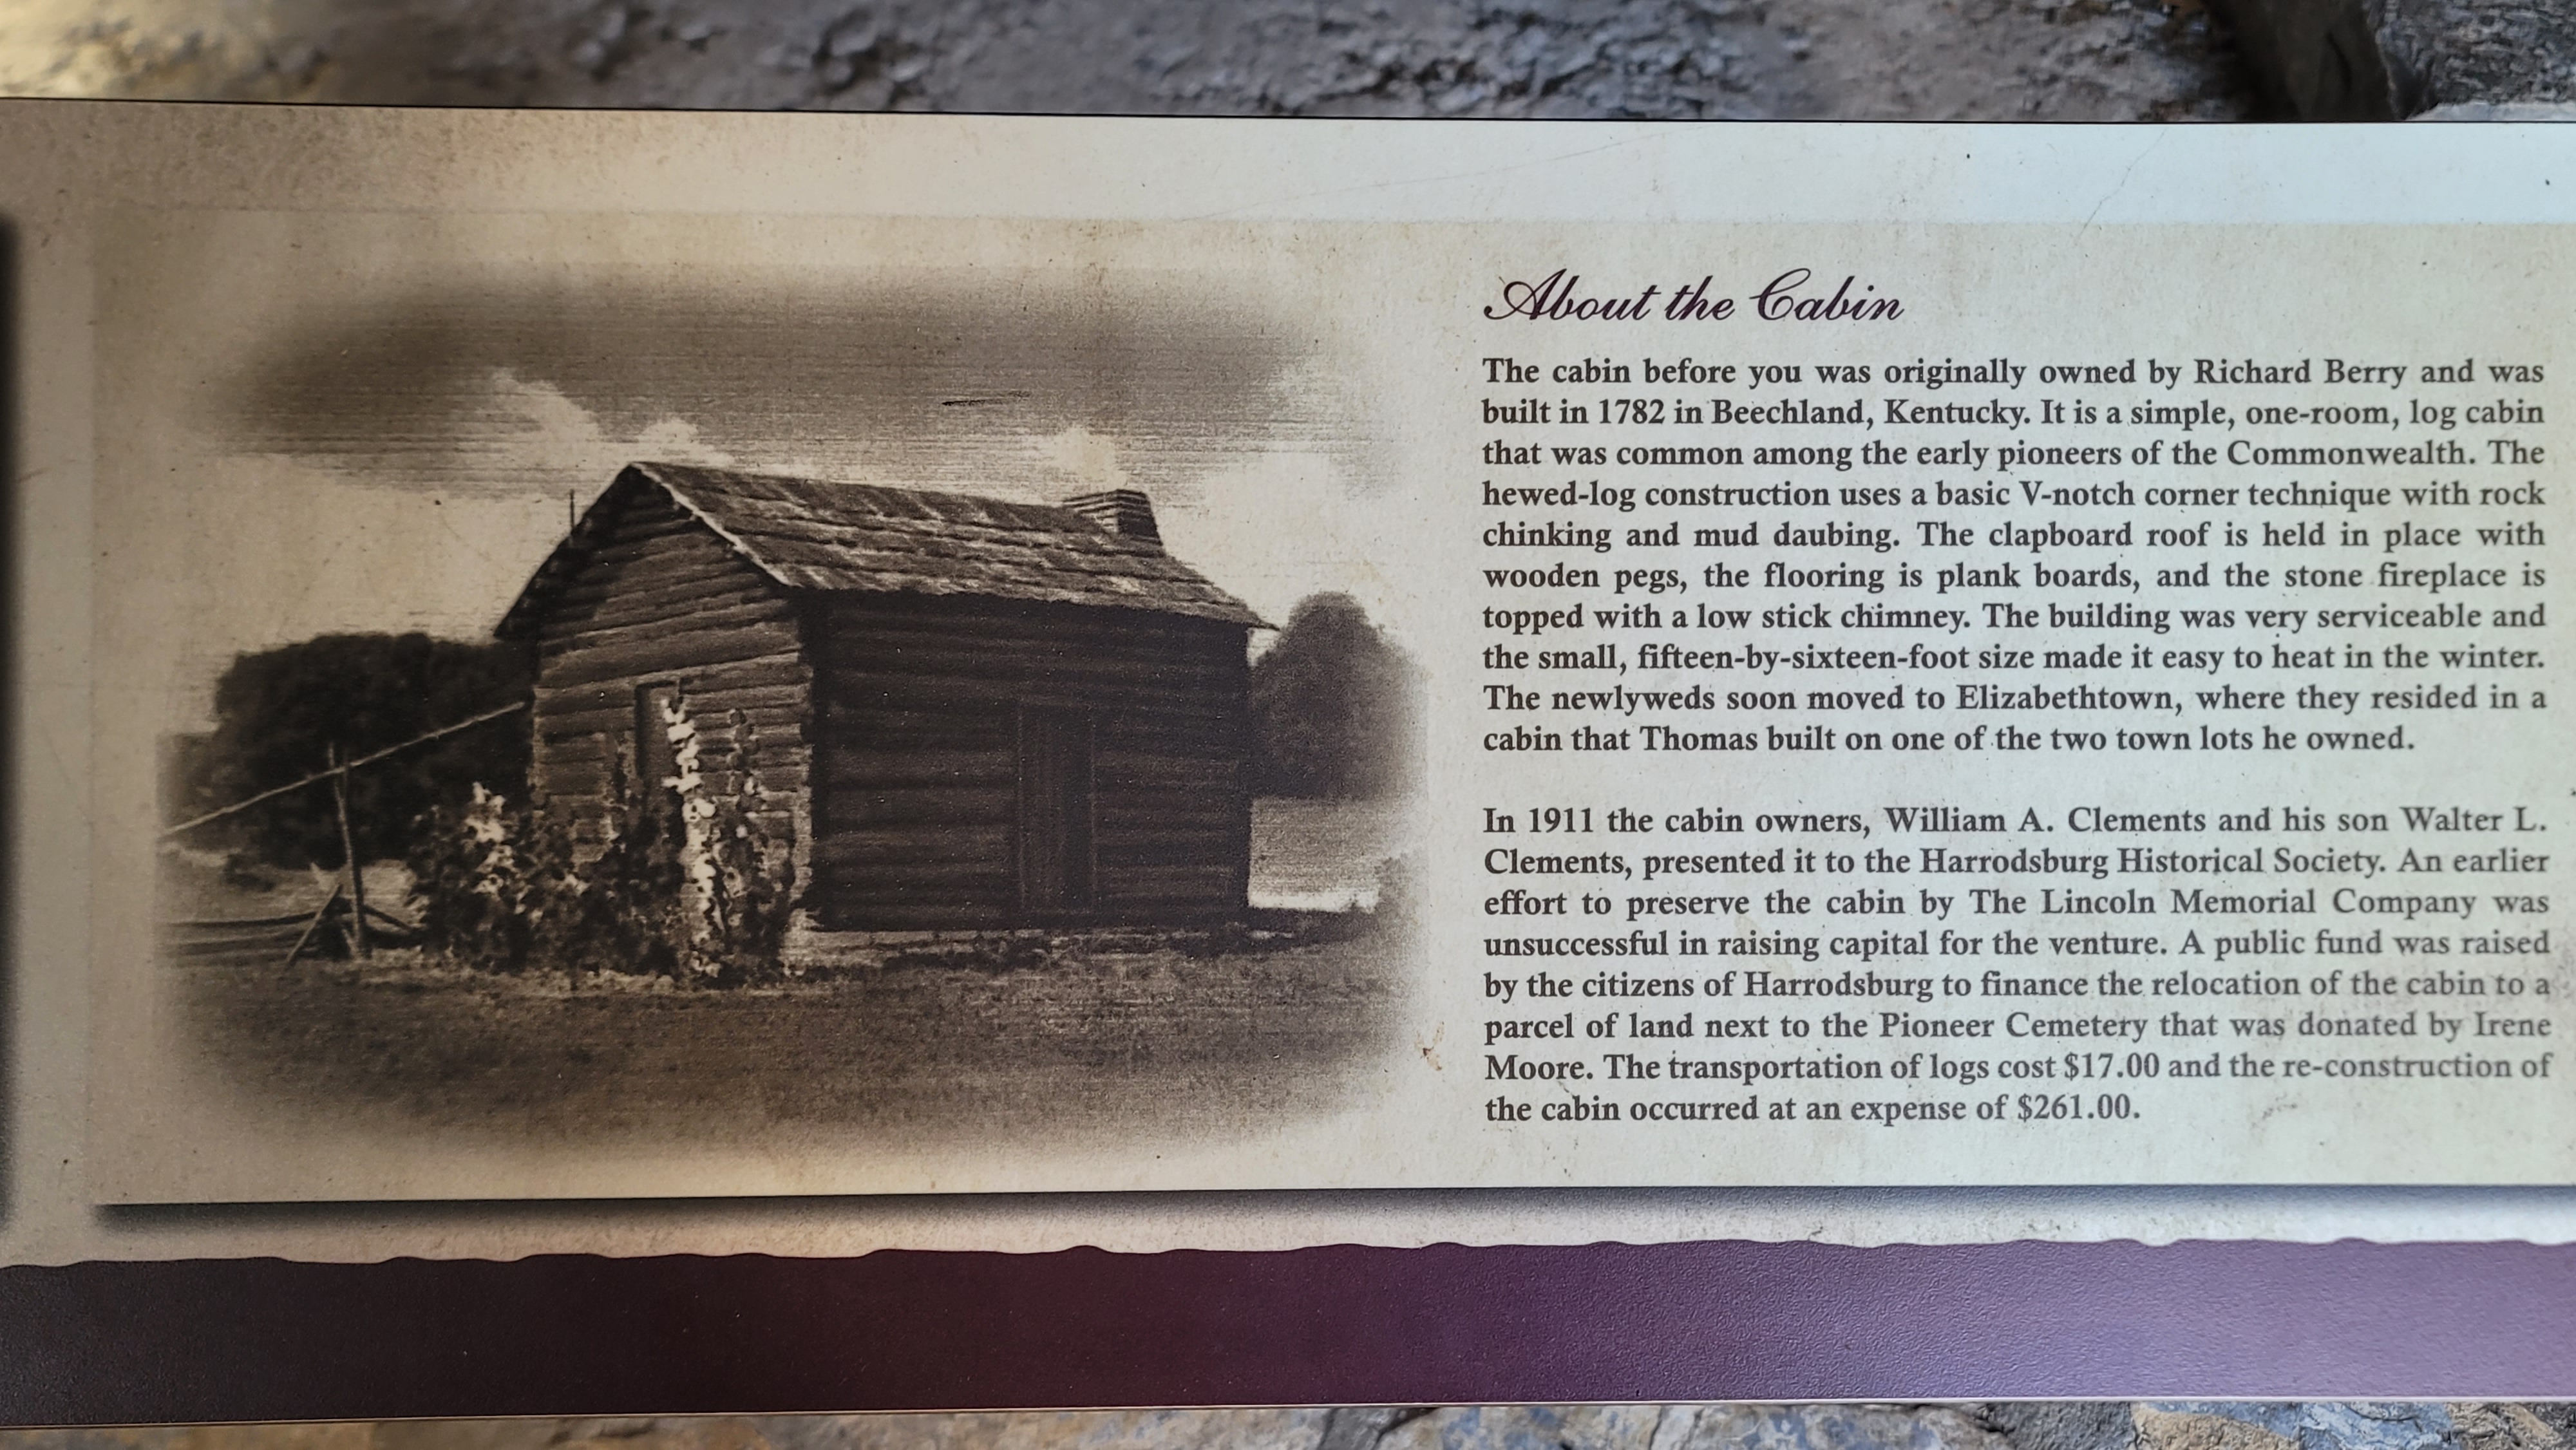 About the Cabin
The cabin before you was originally owned by Richard Berry and was
built in 1782 in Beechland, Kentucky. It is a simple, one-room, log cabin
that was common among the early pioneers of the Commonwealth. The
hewed-log construction uses a basic V-notch corner technique with rock
chinking and mud daubing. The clapboard roof is held in place with
wooden pegs, the flooring is plank boards, and the stone fireplace is
topped with a low stick chimney. The building was very serviceable and
the small, fifteen-by-sixteen-foot size made it easy to heat in the winter.
The newlyweds soon moved to Elizabethtown, where they resided in a
cabin that Thomas built on one of the two town lots he owned.
In 1911 the cabin owners, William A. Clements and his son Walter L.
Clements, presented it to the Harrodsburg Historical Society. An earlier
effort to preserve the cabin by The Lincoln Memorial Company was
unsuccessful in raising capital for the venture. A public fund was raised
by the citizens of Harrodsburg to finance the relocation of the cabin to a
parcel of land next to the Pioneer Cemetery that was donated by Irene
Moore. The transportation of logs cost $17.00 and the re-construction of
the cabin occurred at an expense of $261.00.